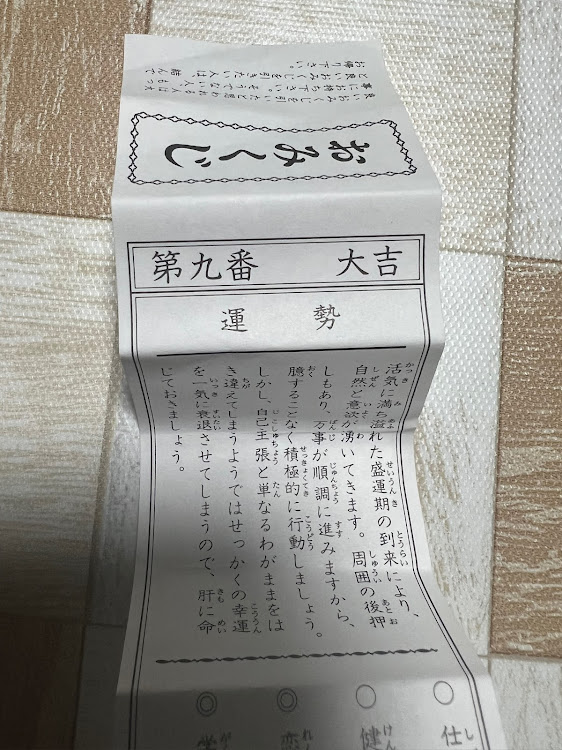 良いおみくじを引いたと思われる人は大
事にお持ち下さい。そうでない人、もっ
と良いおみくじを引きたい人は、結んで
お帰り下さい。
おみくじ
第九番 大吉
運勢
活気に満ち溢れた盛運期の到来により、
自然と意欲が湧いてきます。周囲の後押
しもあり、万事が順調に進みますから、
臆することなく積極的に行動しましょう。
しかし、自己主張と単なるわがままをは
き違えてしまうようではせっかくの幸運
を一気に衰退させてしまうので、肝に命
じておきましょう。
○仕
○健
◎恋
◎学